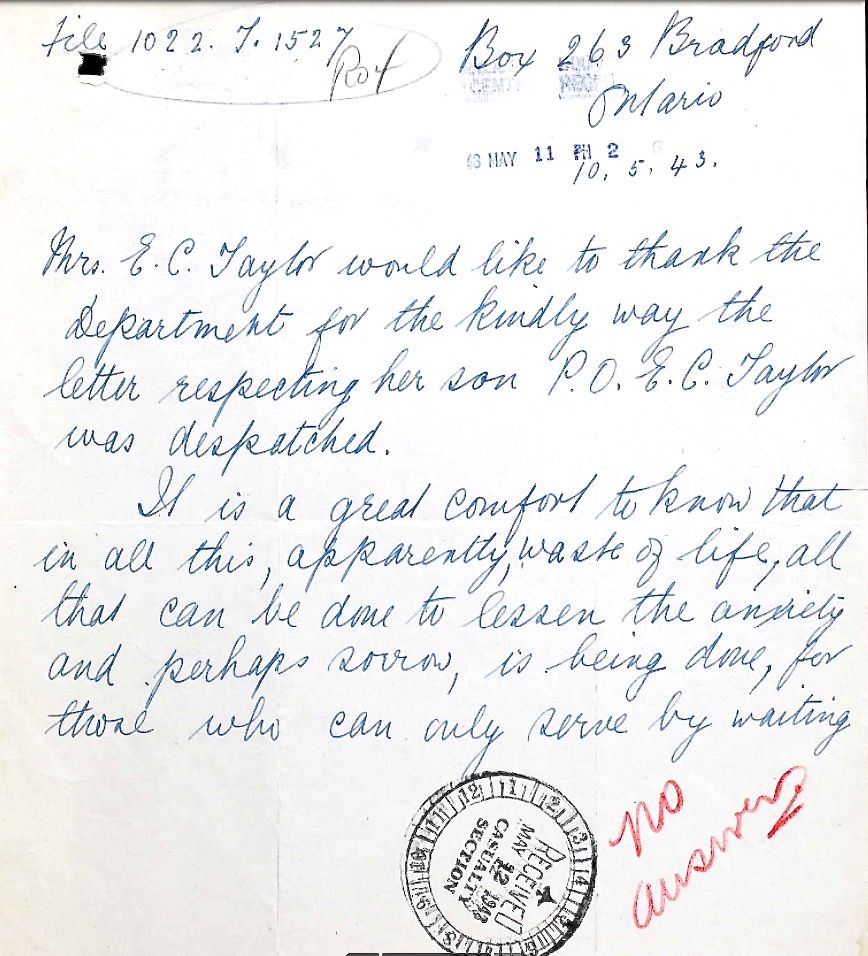 File 1022. T. 1527
Box 263 Bradford
Ontario
MAY 11 PM 2
10. 5. 43.
Mrs. E. C. Taylor would like to thank the
Department for the kindly way the
letter respecting her son P.O. E.C. Taylor
was despatched.
It is a great comfort to know that
in all this, apparently, waste of life, all
that can be done to lessen the anxiety
and perhaps sorrow, is being done, for
those who can only serve by waiting
No
answer
RECEIVED
MAY 12 1943
CASUALTY
SECTION